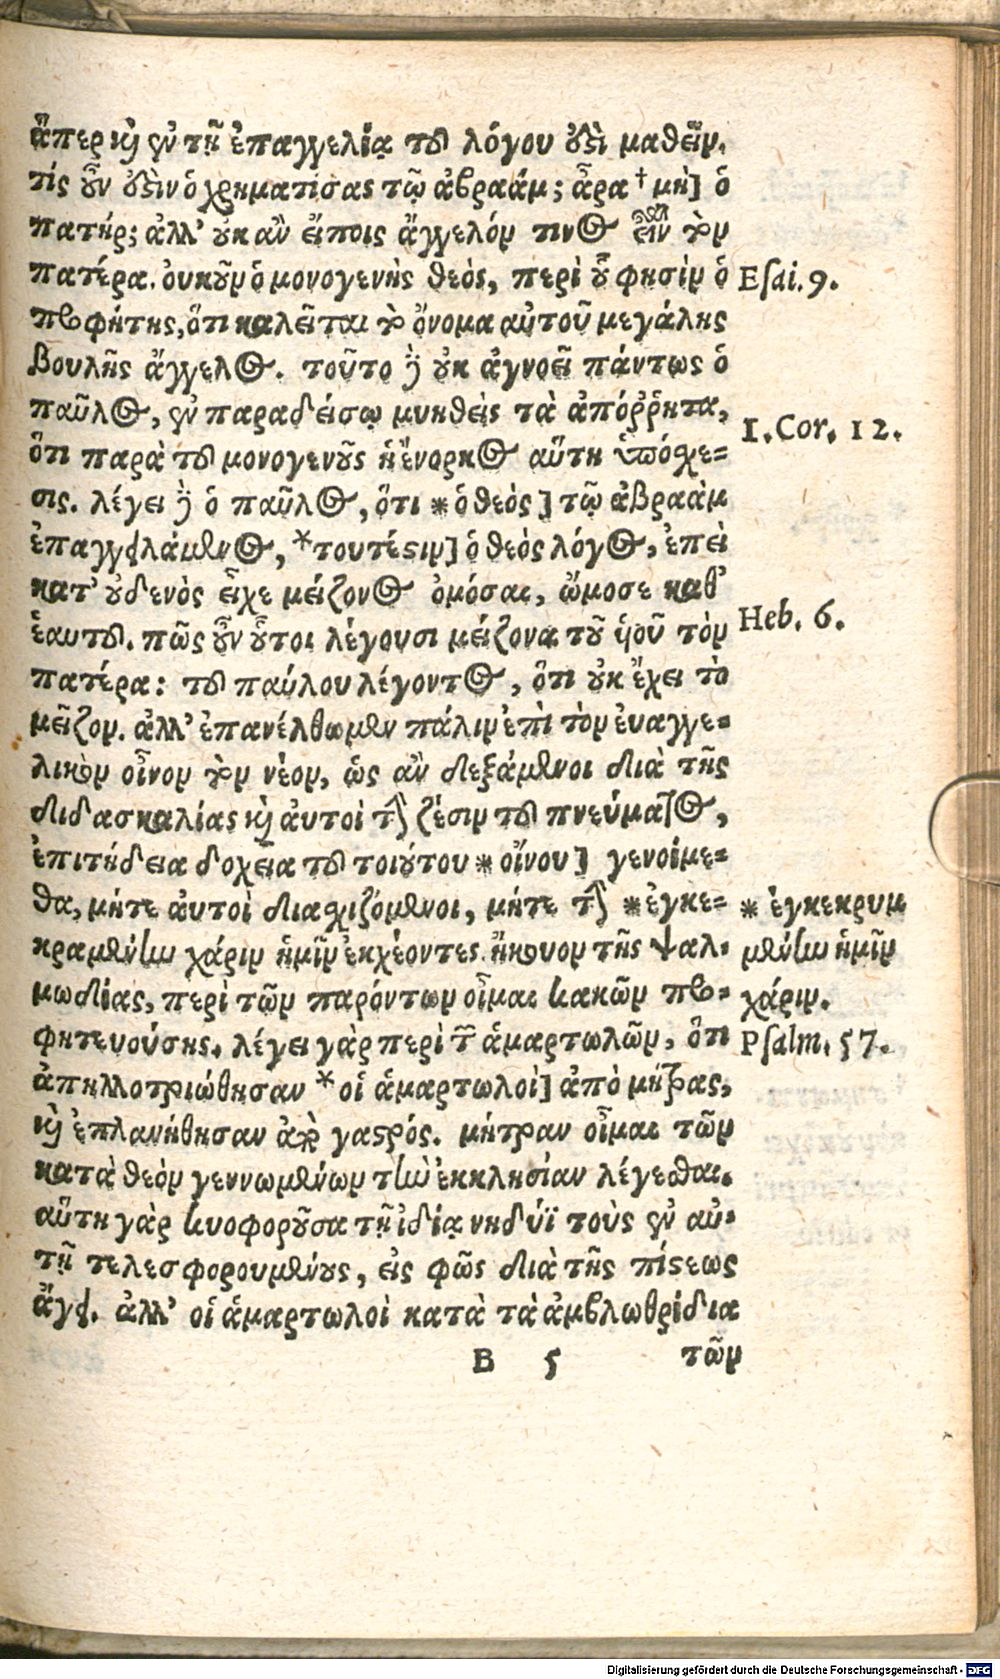 ἅπερ καὶ ἐν τῇ ἐπαγγελίᾳ τοῦ λόγου ὅστι μαθεῖν.
τίς οὖν ὅστιν ὁ χρηματίσας τῷ ἀβραάμ; ἆρα † μὴ] ὁ
πατήρ; ἀλλ' οὐκ ἂν εἴποις ἄγγελόν τινος εἶναι τὸν
πατέρα. οὐκοῦν ὁ μονογενὴς θεὸς, περὶ οὗ φησὶν ὁ
προφήτης, ὅτι καλεῖται τὸ ὄνομα αὐτοῦ μεγάλης
βουλῆς ἄγγελος. τοῦτο ἢ οὐκ ἀγνοεῖ πάντως ὁ
παῦλος, ἐν παραδείσῳ μυηθεὶς τὰ ἀπόῤῥητα,
ὅτι παρὰ τοῦ μονογενοῦς ἡ ἔνορκος αὕτη ὑπόσχε=
σις. λέγει ἢ ὁ παῦλος, ὅτι * ὁ θεὸς] τῷ ἀβραὰμ
ἐπαγγειλάμενος, * τουτέστιν] ὁ θεὸς λόγος, ἐπεὶ
κατ' οὐδενὸς εἶχε μείζονος ὀμόσαι, ὤμοσε καθ'
ἑαυτοῦ. πῶς οὖν οὗτοι λέγουσι μείζονα τοῦ ὑοῦ τὸν
πατέρα: τοῦ παύλου λέγοντος, ὅτι οὐκ ἔχει τὸ
μεῖζον. ἀλλ' ἐπανέλθωμεν πάλιν ἐπὶ τὸν ἐυαγγε=
λικὸν οἶνον τὸν νέον, ὡς ἂν δεξάμενοι διὰ τῆς
διδασκαλίας καὶ ἀυτοὶ τὴν ζέσιν τοῦ πνεύματος,
ἐπιτήδεια δοχεῖα τοῦ τοιούτου * οἴνου] γενοίμε=
θα, μήτε ἀυτοὶ διασχιζόμενοι, μήτε τὴν * ἐγκε=
κραμένην χάριν ἡμῖν ἐκχέοντες. ἤκουον τῆς ψαλ=
μωδίας, περὶ τῶν παρόντων οἶμαι κακῶν προ=
φητευούσης. λέγει γὰρ περὶ τῶν ἁμαρτωλῶν, ὅτι
ἀπηλλοτριώθησαν * οἱ ἁμαρτωλοὶ] ἀπὸ μήτρας,
καὶ ἐπλανήθησαν ἀπὸ γαστρός. μήτραν οἶμαι τῶν
κατὰ θεὸν γεννωμένων τὴν ἐκκλησίαν λέγεσθαι.
αὕτη γὰρ κυοφοροῦσα τῇ ἰδίᾳ νηδύϊ τοὺς ἐν αὐ=
τῇ τελεσφορουμένους, εἰς φῶς διὰ τῆς πίστεως
ἄγει. ἀλλ' οἱ ἁμαρτωλοὶ κατὰ τὰ ἀμβλωθρίδια
B 5 τῶν
Eſai. 9.
1. Cor. 12.
Heb. 6.
* ἐγκεκρυμ
μένην ἡμῖν
χάριν.
Pſalm. 57.
Digitalisierung gefördert durch die Deutsche Forschungsgemeinschaft - DFG